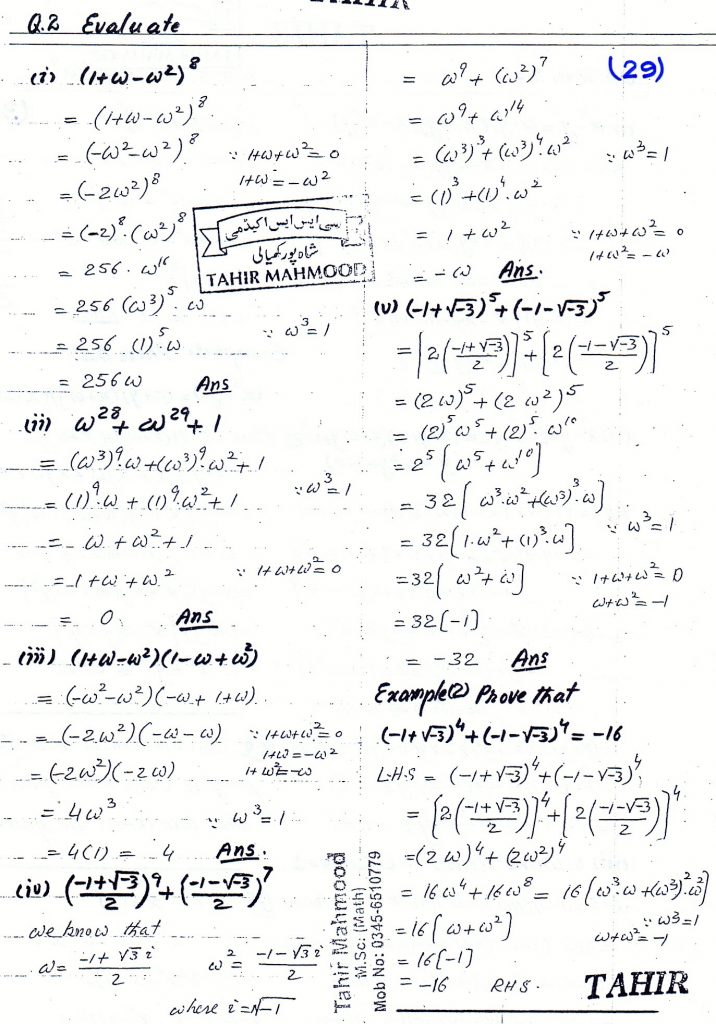 Q.2 Evaluate
(i) (1+ω-ω²)⁸
= (1+ω-ω²)⁸
= (-ω²-ω²)⁸ ∵ 1+ω+ω²=0
= (-2ω²)⁸ 1+ω=-ω²
= (-2)⁸·(ω²)⁸
= 256·ω¹⁶
= 256 (ω³)⁵·ω
= 256 (1)⁵ω ∵ ω³=1
= 256ω Ans
(ii) ω²⁸+ω²⁹+1
= (ω³)⁹·ω+(ω³)⁹·ω²+1
= (1)⁹·ω+(1)⁹·ω²+1 ∵ω³=1
= ω+ω²+1
= 1+ω+ω² ∵ 1+ω+ω²=0
= 0 Ans
(iii) (1+ω-ω²)(1-ω+ω²)
= (-ω²-ω²)(-ω+1+ω)
= (-2ω²)(-ω-ω) ∵ 1+ω+ω²=0
1+ω=-ω²
= (-2ω²)(-2ω) 1+ω²=-ω
= 4ω³ ∵ ω³=1
= 4(1) = 4 Ans.
(iv) ((-1+√-3)/2)⁹+((-1-√-3)/2)⁷
we know that
ω= (-1+√3 i)/2 ω²= (-1-√3 i)/2
where i=√-1
(29)
= ω⁹+(ω²)⁷
= ω⁹+ω¹⁴
= (ω³)³+(ω³)⁴·ω² ∵ ω³=1
= (1)³+(1)⁴·ω²
= 1+ω² ∵ 1+ω+ω²=0
1+ω²=-ω
= -ω Ans.
(v) (-1+√-3)⁵+(-1-√-3)⁵
= [2((-1+√-3)/2)]⁵+[2((-1-√-3)/2)]⁵
= (2ω)⁵+(2ω²)⁵
= (2)⁵ω⁵+(2)⁵·ω¹⁰
= 2⁵[ω⁵+ω¹⁰]
= 32[ω³·ω²+(ω³)³·ω]
= 32[1·ω²+(1)³·ω] ∵ ω³=1
= 32[ω²+ω] ∵ 1+ω+ω²=0
ω+ω²=-1
= 32[-1]
= -32 Ans
Example(2) Prove that
(-1+√-3)⁴+(-1-√-3)⁴=-16
L·H·S = (-1+√-3)⁴+(-1-√-3)⁴
= [2((-1+√-3)/2)]⁴+[2((-1-√-3)/2)]⁴
=(2ω)⁴+(2ω²)⁴
= 16ω⁴+16ω⁸ = 16[ω³·ω+(ω³)²·ω²]
= 16[ω+ω²] ∵ ω³=1
ω+ω²=-1
= 16[-1]
= -16 R·H·S.
سی ایس ایس اکیڈمی
شاہ پور کھیالی
TAHIR MAHMOOD
Tahir Mahmood
M.Sc: (Math)
Mob No: 0345-6510779
TAHIR